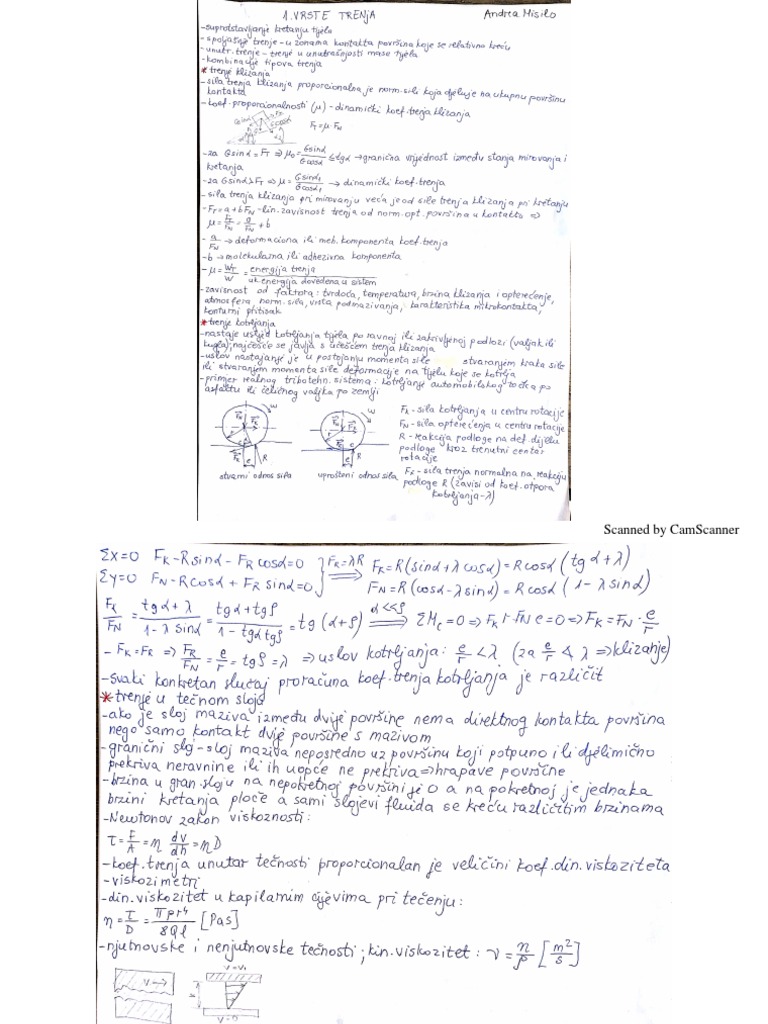 1. VRSTE TRENJA
Andrea Misilo
-suprotstavljanje kretanju tijela
-spoljašnje trenje - u zonama kontakta površina koje se relativno kreću
-unutr. trenje - trenje u unutrašnjosti mase tijela
-kombinacije tipova trenja
* trenje klizanja
-sila trenja klizanja proporcionalna je norm. sili koja djeluje na ukupnu površinu
kontakta
-koef. proporcionalnosti (μ) - dinamički koef. trenja klizanja
F_T = μ·F_N
-za G sinα = F_T ⇒ μ₀ = G sinα / G cosα = tgα → granična vrijednost između stanja mirovanja i
kretanja
-za G sinα > F_T ⇒ μ = G sinα₁ / G cosα₁ → dinamički koef. trenja
-sila trenja klizanja pri mirovanju veća je od sile trenja klizanja pri kretanju
-F_T = a + bF_N - lin. zavisnost trenja od norm. opt. površina u kontaktu ⇒
μ = F_T / F_N = a / F_N + b
- a / F_N → deformaciona ili meh. komponenta koef. trenja
-b → molekularna ili adhezivna komponenta
-μ = W_T / W = energija trenja / uk. energija dovedena u sistem
-zavisnost od faktora: tvrdoća, temperatura, brzina klizanja i opterećenje,
atmosfera, norm. sila, vrsta podmazivanja, karakteristika mikrokontakta,
konturni pritisak
* trenje kotrljanja
-nastaje usljed kotrljanja tijela po ravnoj ili zakrivljenoj podlozi (valjak ili
kugla); najčešće se javlja s učešćem trenja klizanja
-uslov nastajanje je u postojanju momenta sile stvaranjem kraka sile
ili stvaranjem momenta sile deformacije na tijelu koje se kotrlja
-primjer realnog tribotehn. sistema: kotrljanje automobilskog točka po
asfaltu ili čeličnog valjka po zemlji
F_K - sila kotrljanja u centru rotacije
F_N - sila opterećenja u centru rotacije
R - reakcija podloge na def. dijelu
podloge kroz trenutni centar
rotacije
F_R - sila trenja normalna na reakciju
podloge R (zavisi od koef. otpora
kotrljanja - λ)
stvarni odnos sila
uprošteni odnos sila
Scanned by CamScanner
ΣX=0 F_K - R sinα - F_R cosα = 0 } F_R = λR ⇒ F_K = R(sinα + λ cosα) = R cosα (tgα + λ)
ΣY=0 F_N - R cosα + F_R sinα = 0 F_N = R(cosα - λ sinα) = R cosα (1 - λ sinα)
F_K / F_N = tgα + λ / 1 - λ sinα = tgα + tgρ / 1 - tgα tgρ = tg(α + ρ) α<<ρ ⇒ ΣM_C = 0 ⇒ F_K r - F_N e = 0 ⇒ F_K = F_N · e / r
- F_K = F_R ⇒ F_R / F_N = e / r = tgρ = λ ⇒ uslov kotrljanja: e / r < λ (za e / r ≮ λ ⇒ klizanje)
-svaki konkretan slučaj proračuna koef. trenja kotrljanja je različit
* trenje u tečnom sloju
-ako je sloj maziva između dvije površine nema direktnog kontakta površina
nego samo kontakt dvije površine s mazivom
-granični sloj - sloj maziva neposredno uz površinu koji potpuno ili djelimično
prekriva neravnine ili ih uopće ne prekriva ⇒ hrapave površine
-brzina u gran. sloju na nepokretnoj površini je 0 a na pokretnoj je jednaka
brzini kretanja ploče a sami slojevi fluida se kreću različitim brzinama
-Newtonov zakon viskoznosti:
τ = F / A = η dv / dh = ηD
-koef. trenja unutar tečnosti proporcionalan je veličini koef. din. viskoziteta
-viskozimetri
-din. viskozitet u kapilarnim cijevima pri tečenju:
η = τ / D = πpr⁴ / 8Ql [Pas]
-njutnovske i nenjutnovske tečnosti; kin. viskozitet: ν = η / ρ [m² / s]
v=0